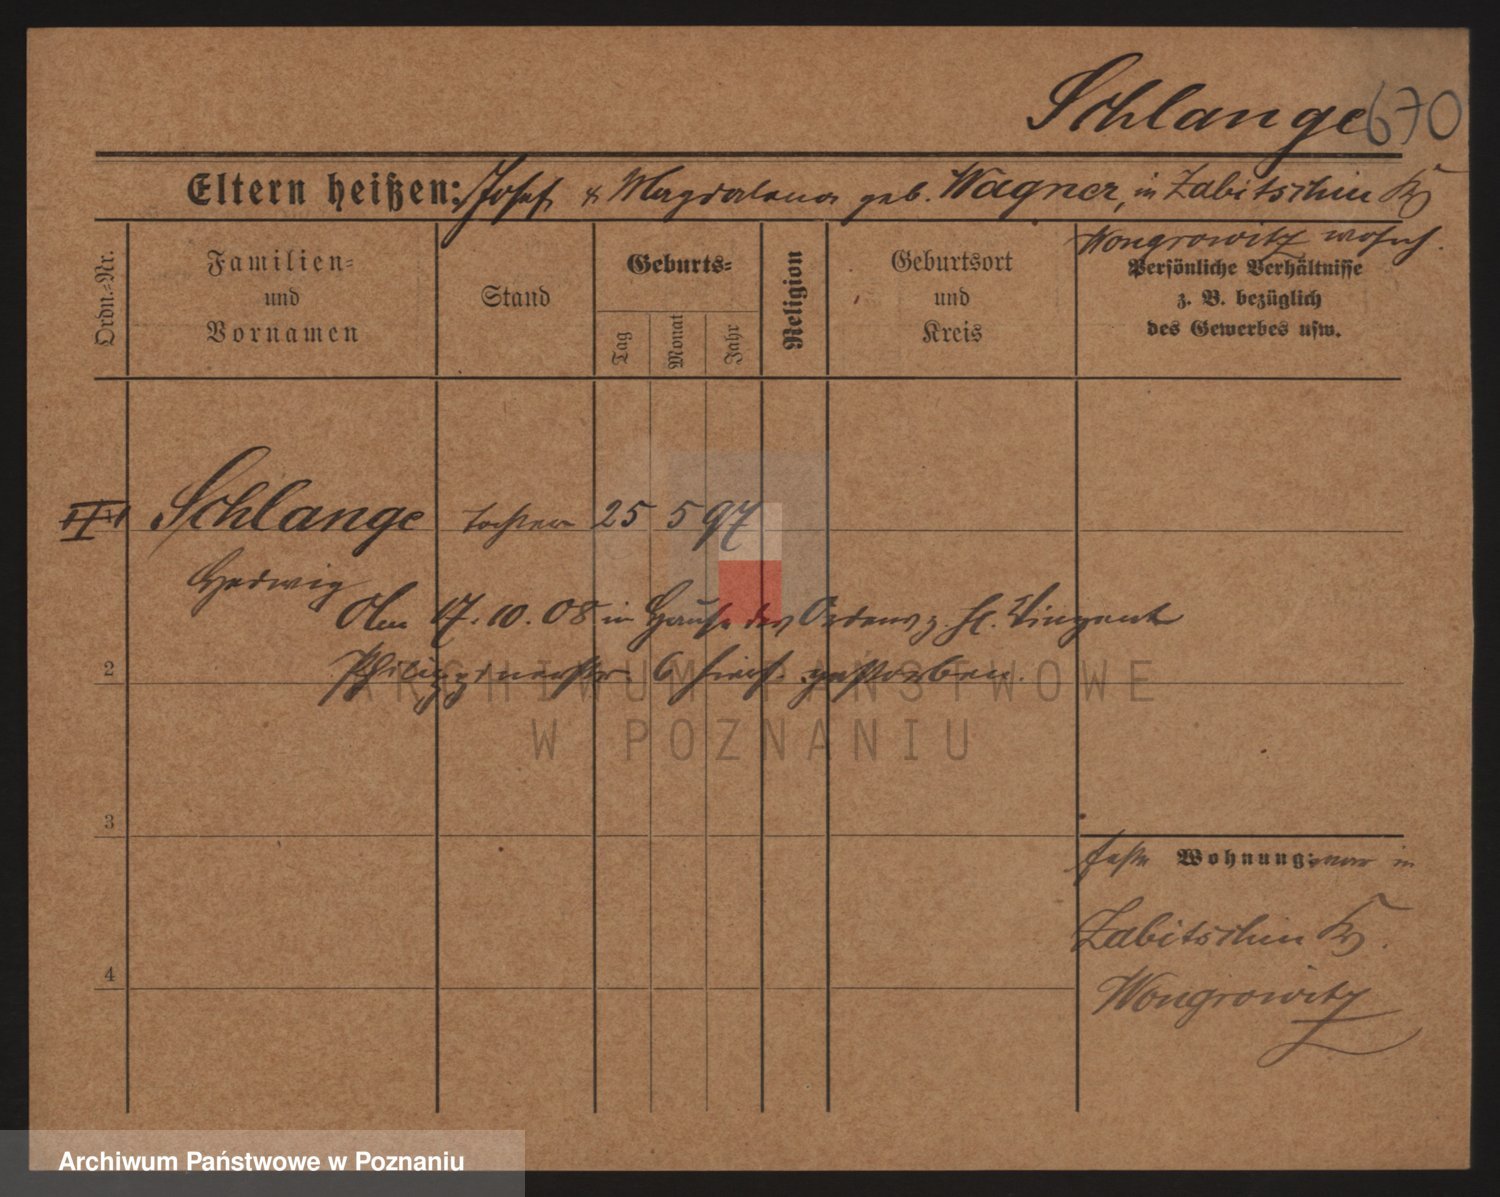 Schlange 670
Eltern heißen: Josef & Magdalena geb. Wagner, in Zabitschin Kr
Wongrowitz wohnh.
Ordn.-Nr.
Familien-
und
Vornamen
Stand
Geburts-
Tag
Monat
Jahr
Religion
Geburtsort
und
Kreis
Persönliche Verhältnisse
z. B. bezüglich
des Gewerbes usw.
Schlange Tochter 25 5 97
Hedwig
Am 17.10.08 in Hause des Ordens z. hl. Vinzent
Philippinerstr. 6 hier gestorben.
2
3
4
feste Wohnung: war in
Zabitschin Kr.
Wongrowitz
ARCHIWUM PAŃSTWOWE
W POZNANIU
Archiwum Państwowe w Poznaniu